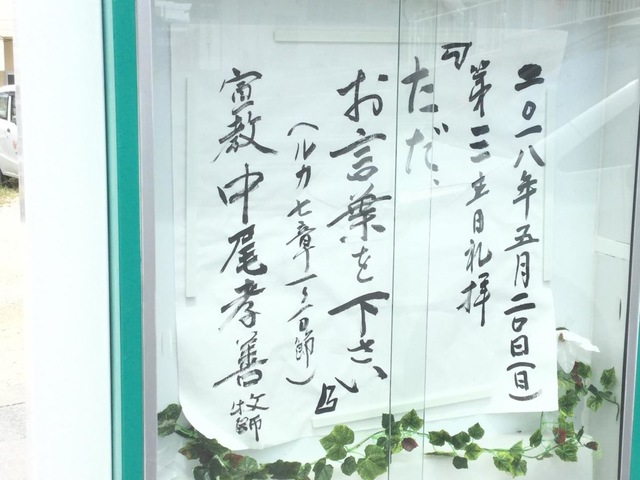 二〇一八年五月二〇日(日)
第三主日礼拝
『ただ、
お言葉を下さい』
(ルカ七章一~一〇節)
宣教 中尾孝善牧師